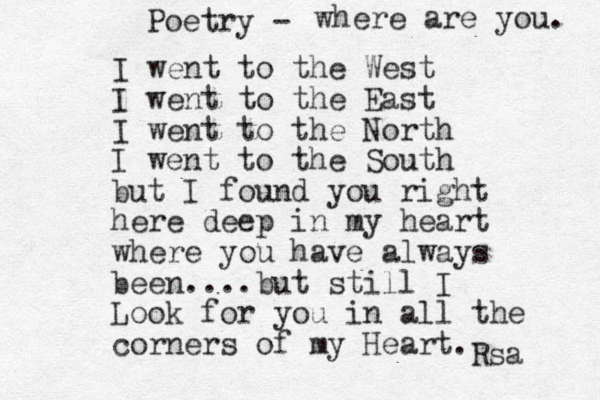 Poetry - where are you.
I went to the West
I went to the East
I went to the North
I went to the South
but I found you right
here deep in my heart
where you have always
been....but still I
Look for you in all the
corners of my Heart.
Rsa